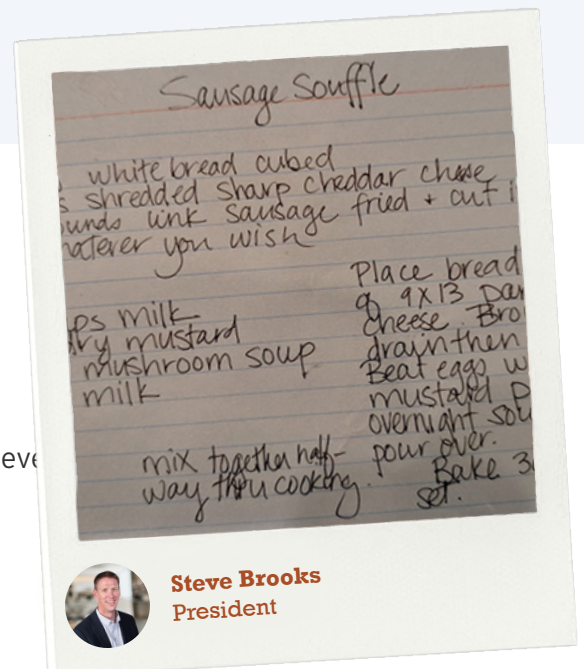 Sausage Souffle
white bread cubed
shredded sharp cheddar cheese
link sausage fried + cut
you wish
milk
mustard
mushroom soup
milk
mix together half-
way thru cooking.
Place bread
9x13
cheese.
drain then
Beat eggs
mustard
overnight
pour over.
Bake
set.
Steve Brooks
President